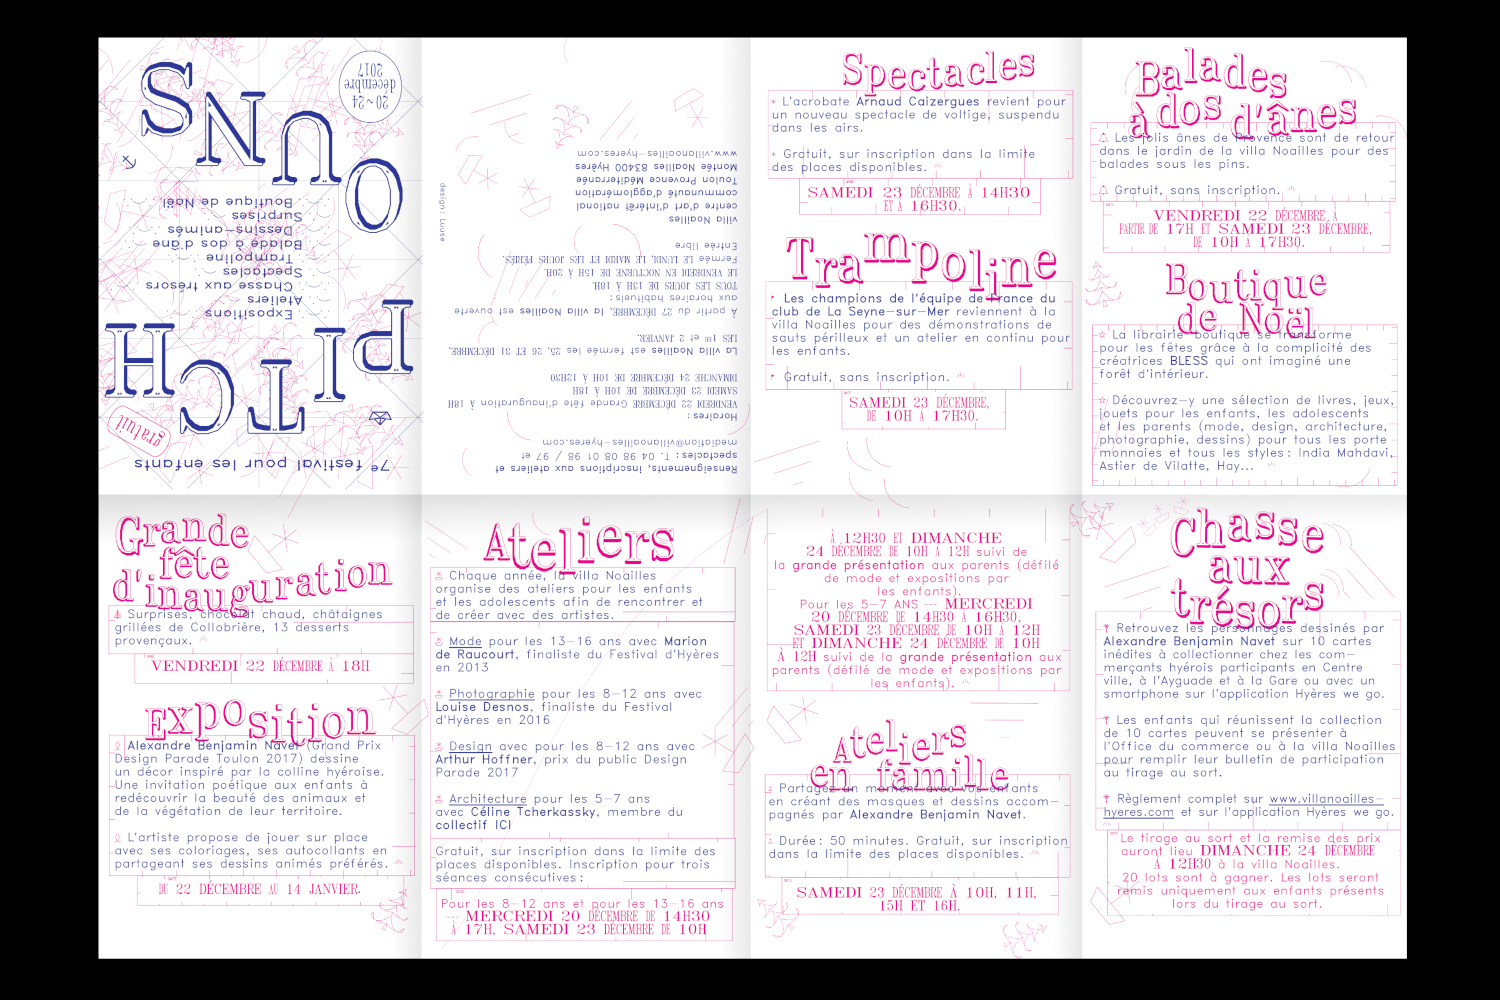 7e festival pour les enfants
gratuit
PITCH
Expositions
Ateliers
Chasse aux trésors
Spectacles
Trampoline
Balade à dos d'âne
Dessins–animés
Surprises
Boutique de Noël
OUNS
20~24
décembre
2017
Renseignements, inscriptions aux ateliers et
spectacles : T. 04 98 08 01 98 / 97 et
mediation@villanoailles–hyeres.com
Horaires :
VENDREDI 22 DÉCEMBRE Grande fête d'inauguration À 18H
SAMEDI 23 DÉCEMBRE DE 10H À 18H
DIMANCHE 24 DÉCEMBRE DE 10H À 12H30
La villa Noailles est fermée les 25, 26 ET 31 DÉCEMBRE,
LES 1er et 2 JANVIER.
À partir du 27 DÉCEMBRE, la villa Noailles est ouverte
aux horaires habituels :
TOUS LES JOURS DE 13H À 18H.
LE VENDREDI EN NOCTURNE DE 15H À 20H.
Fermée LE LUNDI, LE MARDI ET LES JOURS FÉRIÉS.
Entrée libre
villa Noailles
centre d'art d'intérêt national
communauté d'agglomération
Toulon Provence Méditerranée
Montée Noailles 83400 Hyères
www.villanoailles–hyeres.com
design : Luuse
Spectacles
* L'acrobate Arnaud Caizergues revient pour
un nouveau spectacle de voltige, suspendu
dans les airs.
* Gratuit, sur inscription dans la limite
des places disponibles.
SAMEDI 23 DÉCEMBRE À 14H30
ET À 16H30.
Trampoline
Les champions de l'équipe de France du
club de La Seyne–sur–Mer reviennent à la
villa Noailles pour des démonstrations de
sauts périlleux et un atelier en continu pour
les enfants.
Gratuit, sans inscription.
SAMEDI 23 DÉCEMBRE,
DE 10H À 17H30.
Balades
à dos d'ânes
Les jolis ânes de Provence sont de retour
dans le jardin de la villa Noailles pour des
balades sous les pins.
Gratuit, sans inscription.
VENDREDI 22 DÉCEMBRE, À
PARTIR DE 17H ET SAMEDI 23 DÉCEMBRE,
DE 10H À 17H30.
Boutique
de Noël
La librairie–boutique se transforme
pour les fêtes grâce à la complicité des
créatrices BLESS qui ont imaginé une
forêt d'intérieur.
Découvrez–y une sélection de livres, jeux,
jouets pour les enfants, les adolescents
et les parents (mode, design, architecture,
photographie, dessins) pour tous les porte
monnaies et tous les styles : India Mahdavi,
Astier de Vilatte, Hay...
Grande
fête
d'inauguration
Surprises, chocolat chaud, châtaignes
grillées de Collobrière, 13 desserts
provençaux.
VENDREDI 22 DÉCEMBRE À 18H
Exposition
Alexandre Benjamin Navet (Grand Prix
Design Parade Toulon 2017) dessine
un décor inspiré par la colline hyéroise.
Une invitation poétique aux enfants à
redécouvrir la beauté des animaux et
de la végétation de leur territoire.
L'artiste propose de jouer sur place
avec ses coloriages, ses autocollants en
partageant ses dessins animés préférés.
DU 22 DÉCEMBRE AU 14 JANVIER.
Ateliers
Chaque année, la villa Noailles
organise des ateliers pour les enfants
et les adolescents afin de rencontrer et
de créer avec des artistes.
Mode pour les 13–16 ans avec Marion
de Raucourt, finaliste du Festival d'Hyères
en 2013
Photographie pour les 8–12 ans avec
Louise Desnos, finaliste du Festival
d'Hyères en 2016
Design avec pour les 8–12 ans avec
Arthur Hoffner, prix du public Design
Parade 2017
Architecture pour les 5–7 ans
avec Céline Tcherkassky, membre du
collectif ICI
Gratuit, sur inscription dans la limite des
places disponibles. Inscription pour trois
séances consécutives :
Pour les 8–12 ans et pour les 13–16 ans
--- MERCREDI 20 DÉCEMBRE DE 14H30
À 17H, SAMEDI 23 DÉCEMBRE DE 10H
À 12H30 ET DIMANCHE
24 DÉCEMBRE DE 10H À 12H suivi de
la grande présentation aux parents (défilé
de mode et expositions par
les enfants).
Pour les 5–7 ANS --- MERCREDI
20 DÉCEMBRE DE 14H30 À 16H30,
SAMEDI 23 DÉCEMBRE DE 10H À 12H
ET DIMANCHE 24 DÉCEMBRE DE 10H
À 12H suivi de la grande présentation aux
parents (défilé de mode et expositions par
les enfants).
Ateliers
en famille
Partagez un moment avec vos enfants
en créant des masques et dessins accom–
pagnés par Alexandre Benjamin Navet.
Durée : 50 minutes. Gratuit, sur inscription
dans la limite des places disponibles.
SAMEDI 23 DÉCEMBRE À 10H, 11H,
15H ET 16H.
Chasse
aux
trésors
Retrouvez les personnages dessinés par
Alexandre Benjamin Navet sur 10 cartes
inédites à collectionner chez les com–
merçants hyérois participants en Centre
ville, à l'Ayguade et à la Gare ou avec un
smartphone sur l'application Hyères we go.
Les enfants qui réunissent la collection
de 10 cartes peuvent se présenter à
l'Office du commerce ou à la villa Noailles
pour remplir leur bulletin de participation
au tirage au sort.
Règlement complet sur www.villanoailles–
hyeres.com et sur l'application Hyères we go.
Le tirage au sort et la remise des prix
auront lieu DIMANCHE 24 DÉCEMBRE
À 12H30 à la villa Noailles.
20 lots sont à gagner. Les lots seront
remis uniquement aux enfants présents
lors du tirage au sort.